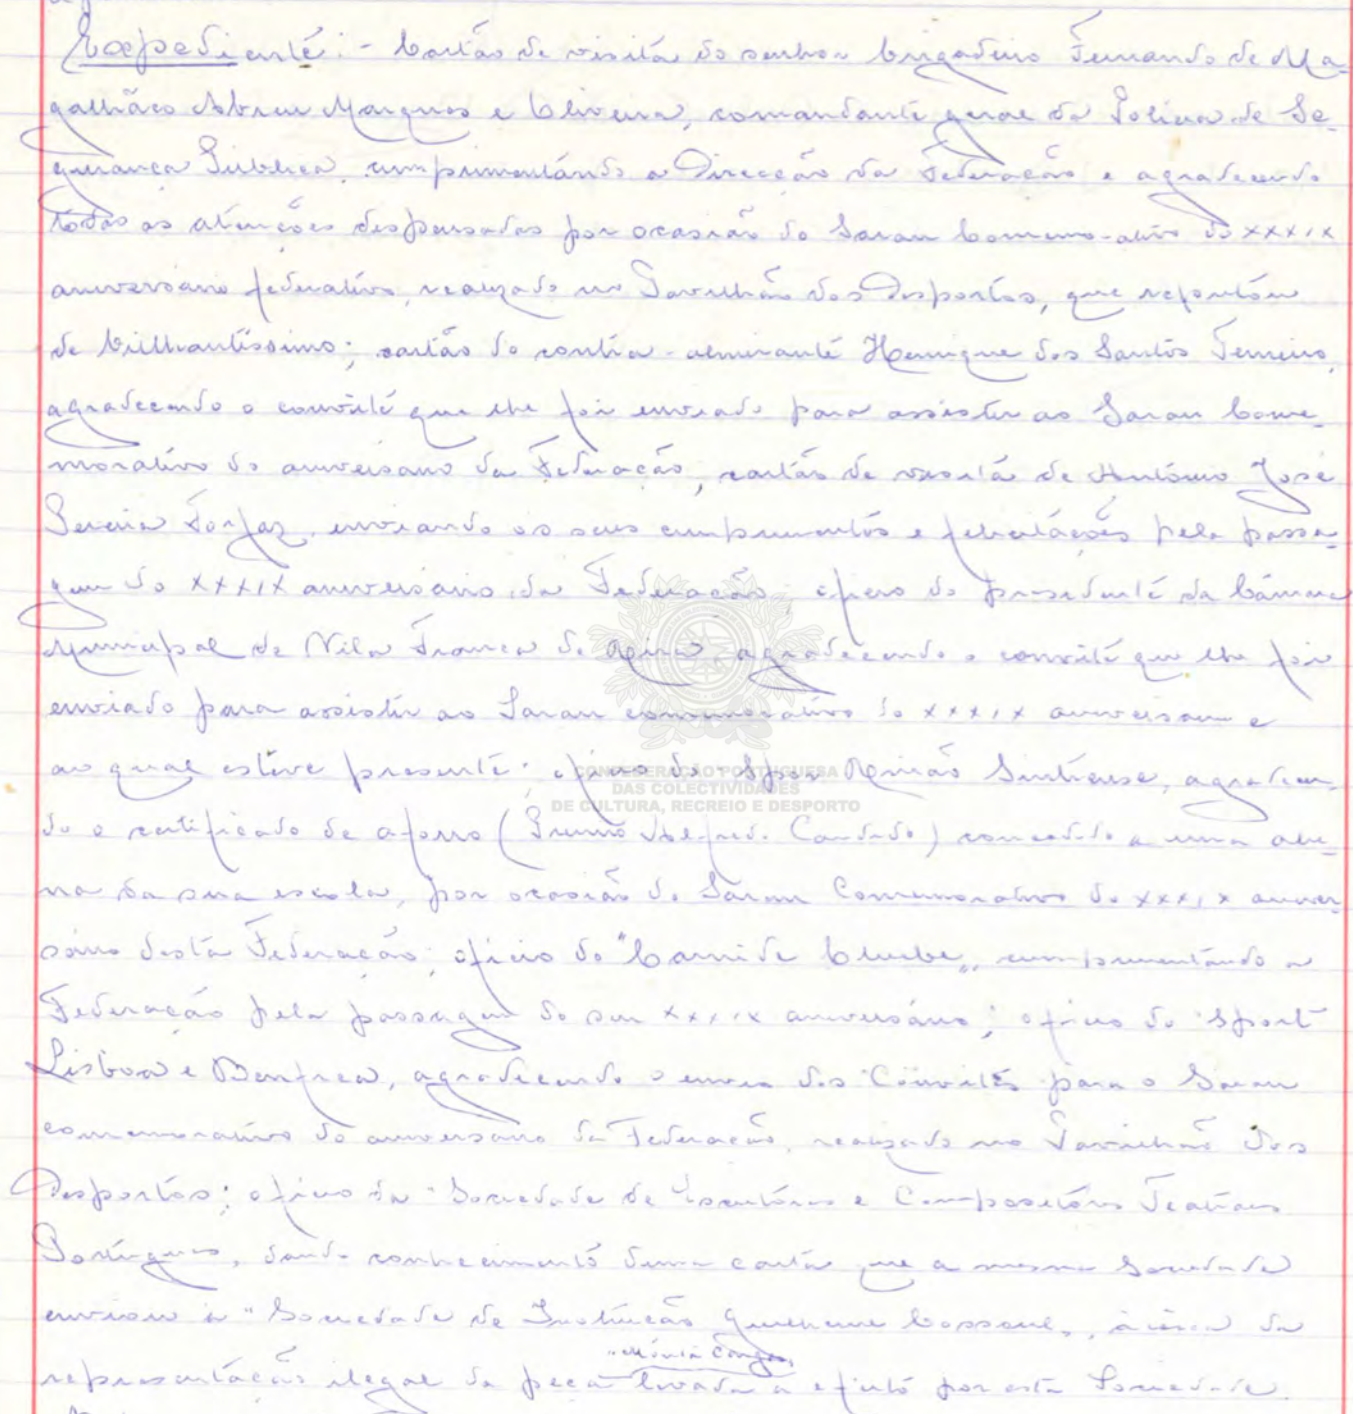 Expediente: - Cartão de visita do senhor brigadeiro Fernando de Ma-
galhães Abreu Marques e Oliveira, comandante geral da Polícia de Se-
gurança Pública, cumprimentando a Direcção da Federação e agradecendo
todas as atenções dispensadas por ocasião do Sarau Comemorativo do XXXIX
aniversário federativo, realizado no Pavilhão dos Desportos, que reputou
de brilhantíssimo; cartão do contra-almirante Henrique dos Santos Tenreiro,
agradecendo o convite que lhe foi enviado para assistir ao Sarau Come-
morativo do aniversário da Federação, cartão de visita de António José
Pereira Forjaz, enviando os seus cumprimentos e felicitações pela passa-
gem do XXXIX aniversário da Federação; ofício do presidente da Câmara
Municipal de Vila Franca de Xira, agradecendo o convite que lhe foi
enviado para assistir ao Sarau comemorativo do XXXIX aniversário e
ao qual esteve presente; ofício do Sport União Sintrense, agradecen-
CONFEDERAÇÃO PORTUGUESA
DAS COLECTIVIDADES
DE CULTURA, RECREIO E DESPORTO
do o certificado de aforro (Prémio Alfredo Candido) concedido a uma alu-
na da sua escola, por ocasião do Sarau Comemorativo do XXXIX aniver-
sário desta Federação; ofício do "Carnide Clube", cumprimentando a
Federação pela passagem do seu XXXIX aniversário; ofício do Sport
Lisboa e Benfica, agradecendo o envio dos Convites para o Sarau
comemorativo do aniversário da Federação, realizado no Pavilhão dos
Desportos; ofício da "Sociedade de Escritores e Compositores Teatrais
Portugueses, dando conhecimento duma carta que a mesma Sociedade
enviou à "Sociedade de Instrução Guilherme Cossoul", àcerca da
representação ilegal da peça levada a efeito por esta Sociedade.